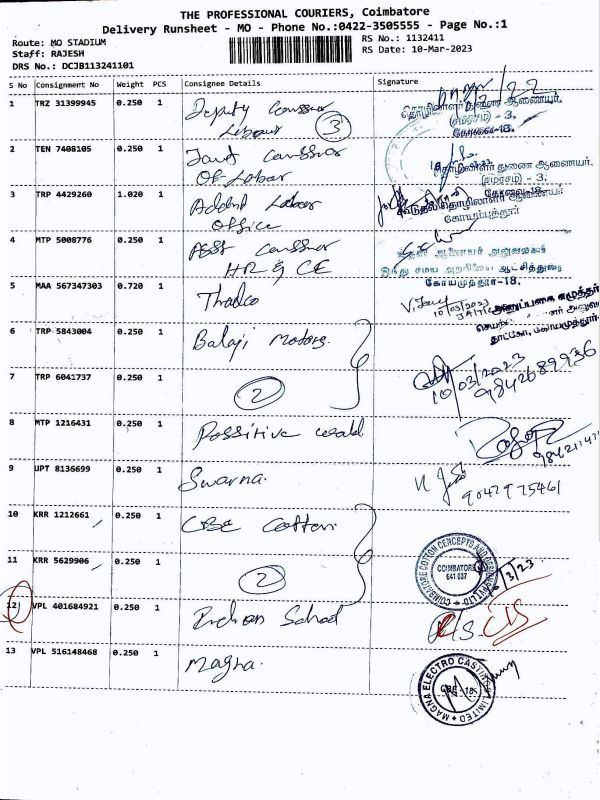 THE PROFESSIONAL COURIERS, Coimbatore
Delivery Runsheet - MO - Phone No.:0422-3505555 - Page No.:1
Route: MO STADIUM
Staff: RAJESH
DRS No.: DCJB113241101
RS No.: 1132411
RS Date: 10-Mar-2023
S No Consignment No Weight PCS Consignee Details Signature
1 TRZ 31399945 0.250 1 Deputy
Labour 3
தொழிலாளர் துணை ஆணையர்.
(சமரசம்) - 3.
கோவை-18.
2 TEN 7408105 0.250 1 Joint
Of Labor
தொழிலாளர் துணை ஆணையர்.
(சமரசம்) - 3.
கோவை-18.
3 TRP 4429260 1.020 1 Labor
Office
கூடுதல் தொழிலாளர் ஆணையர்
கோயம்புத்தூர்
4 MTP 5008776 0.250 1 Asst
HR & CE
இந்து சமய அறநிலைய ஆட்சித்துறை
கோயமுத்தூர்-18.
5 MAA 567347303 0.720 1 Thadco
10/03/2023
6 TRP 5843004 0.250 1 Balaji Motors
7 TRP 6041737 0.250 1 2
10/03/2023
9842689936
8 MTP 1216431 0.250 1 Possitive
9 UPT 8136699 0.250 1 Swarna.
9042975461
10 KRR 1212661 0.250 1 CBE Cotton
11 KRR 5629906 0.250 1 2
COIMBATORE COTTON CONCEPTS AND
COIMBATORE
641 037
12 VPL 401684921 0.250 1 Indian School
CIS
13 VPL 516148468 0.250 1 Magna.
MAGNA ELECTRO CASTINGS LIMITED
CBE - 18